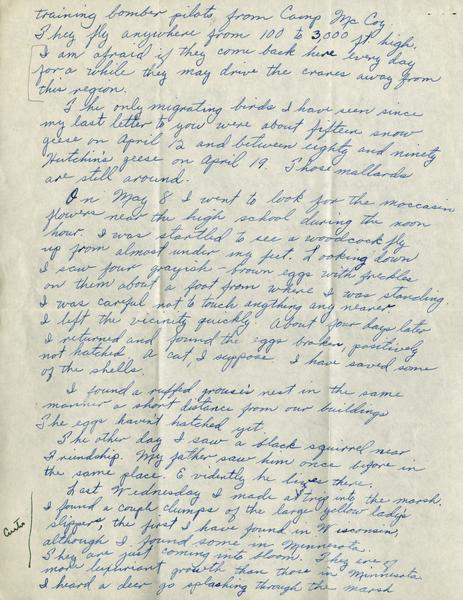 training bomber pilots, from Camp McCoy.
They fly anywhere from 100 to 3,000 ft. high.
I am afraid if they come back here every day
for a while they may drive the cranes away from
this region.
The only migrating birds I have seen since
my last letter to you were about fifteen snow
geese on April 12 and between eighty and ninety
Hutchin's geese on April 19. Those mallards
are still around.
On May 8 I went to look for the moccasin
flowers near the high school during the noon
hour. I was startled to see a woodcock fly
up from almost under my feet. Looking down
I saw four grayish-brown eggs with freckles
on them about a foot from where I was standing.
I was careful not to touch anything any nearer.
I left the vicinity quickly. About four days later
I returned and found the eggs broken, positively
not hatched. A cat, I suppose. I have saved some
of the shells.
I found a ruffed grouse's nest in the same
manner a short distance from our buildings
The eggs haven't hatched yet.
The other day I saw a black squirrel near
Friendship. My father saw him once before in
the same place. Evidently he lives there.
Last Wednesday I made a trip into the marsh.
I found a couple clumps of the large yellow lady's
slippers, the first I have found in Wisconsin,
although I found some in Minnesota.
They are just coming into bloom. They are of
more luxuriant growth than those in Minnesota.
I heard a deer go splashing through the marsh